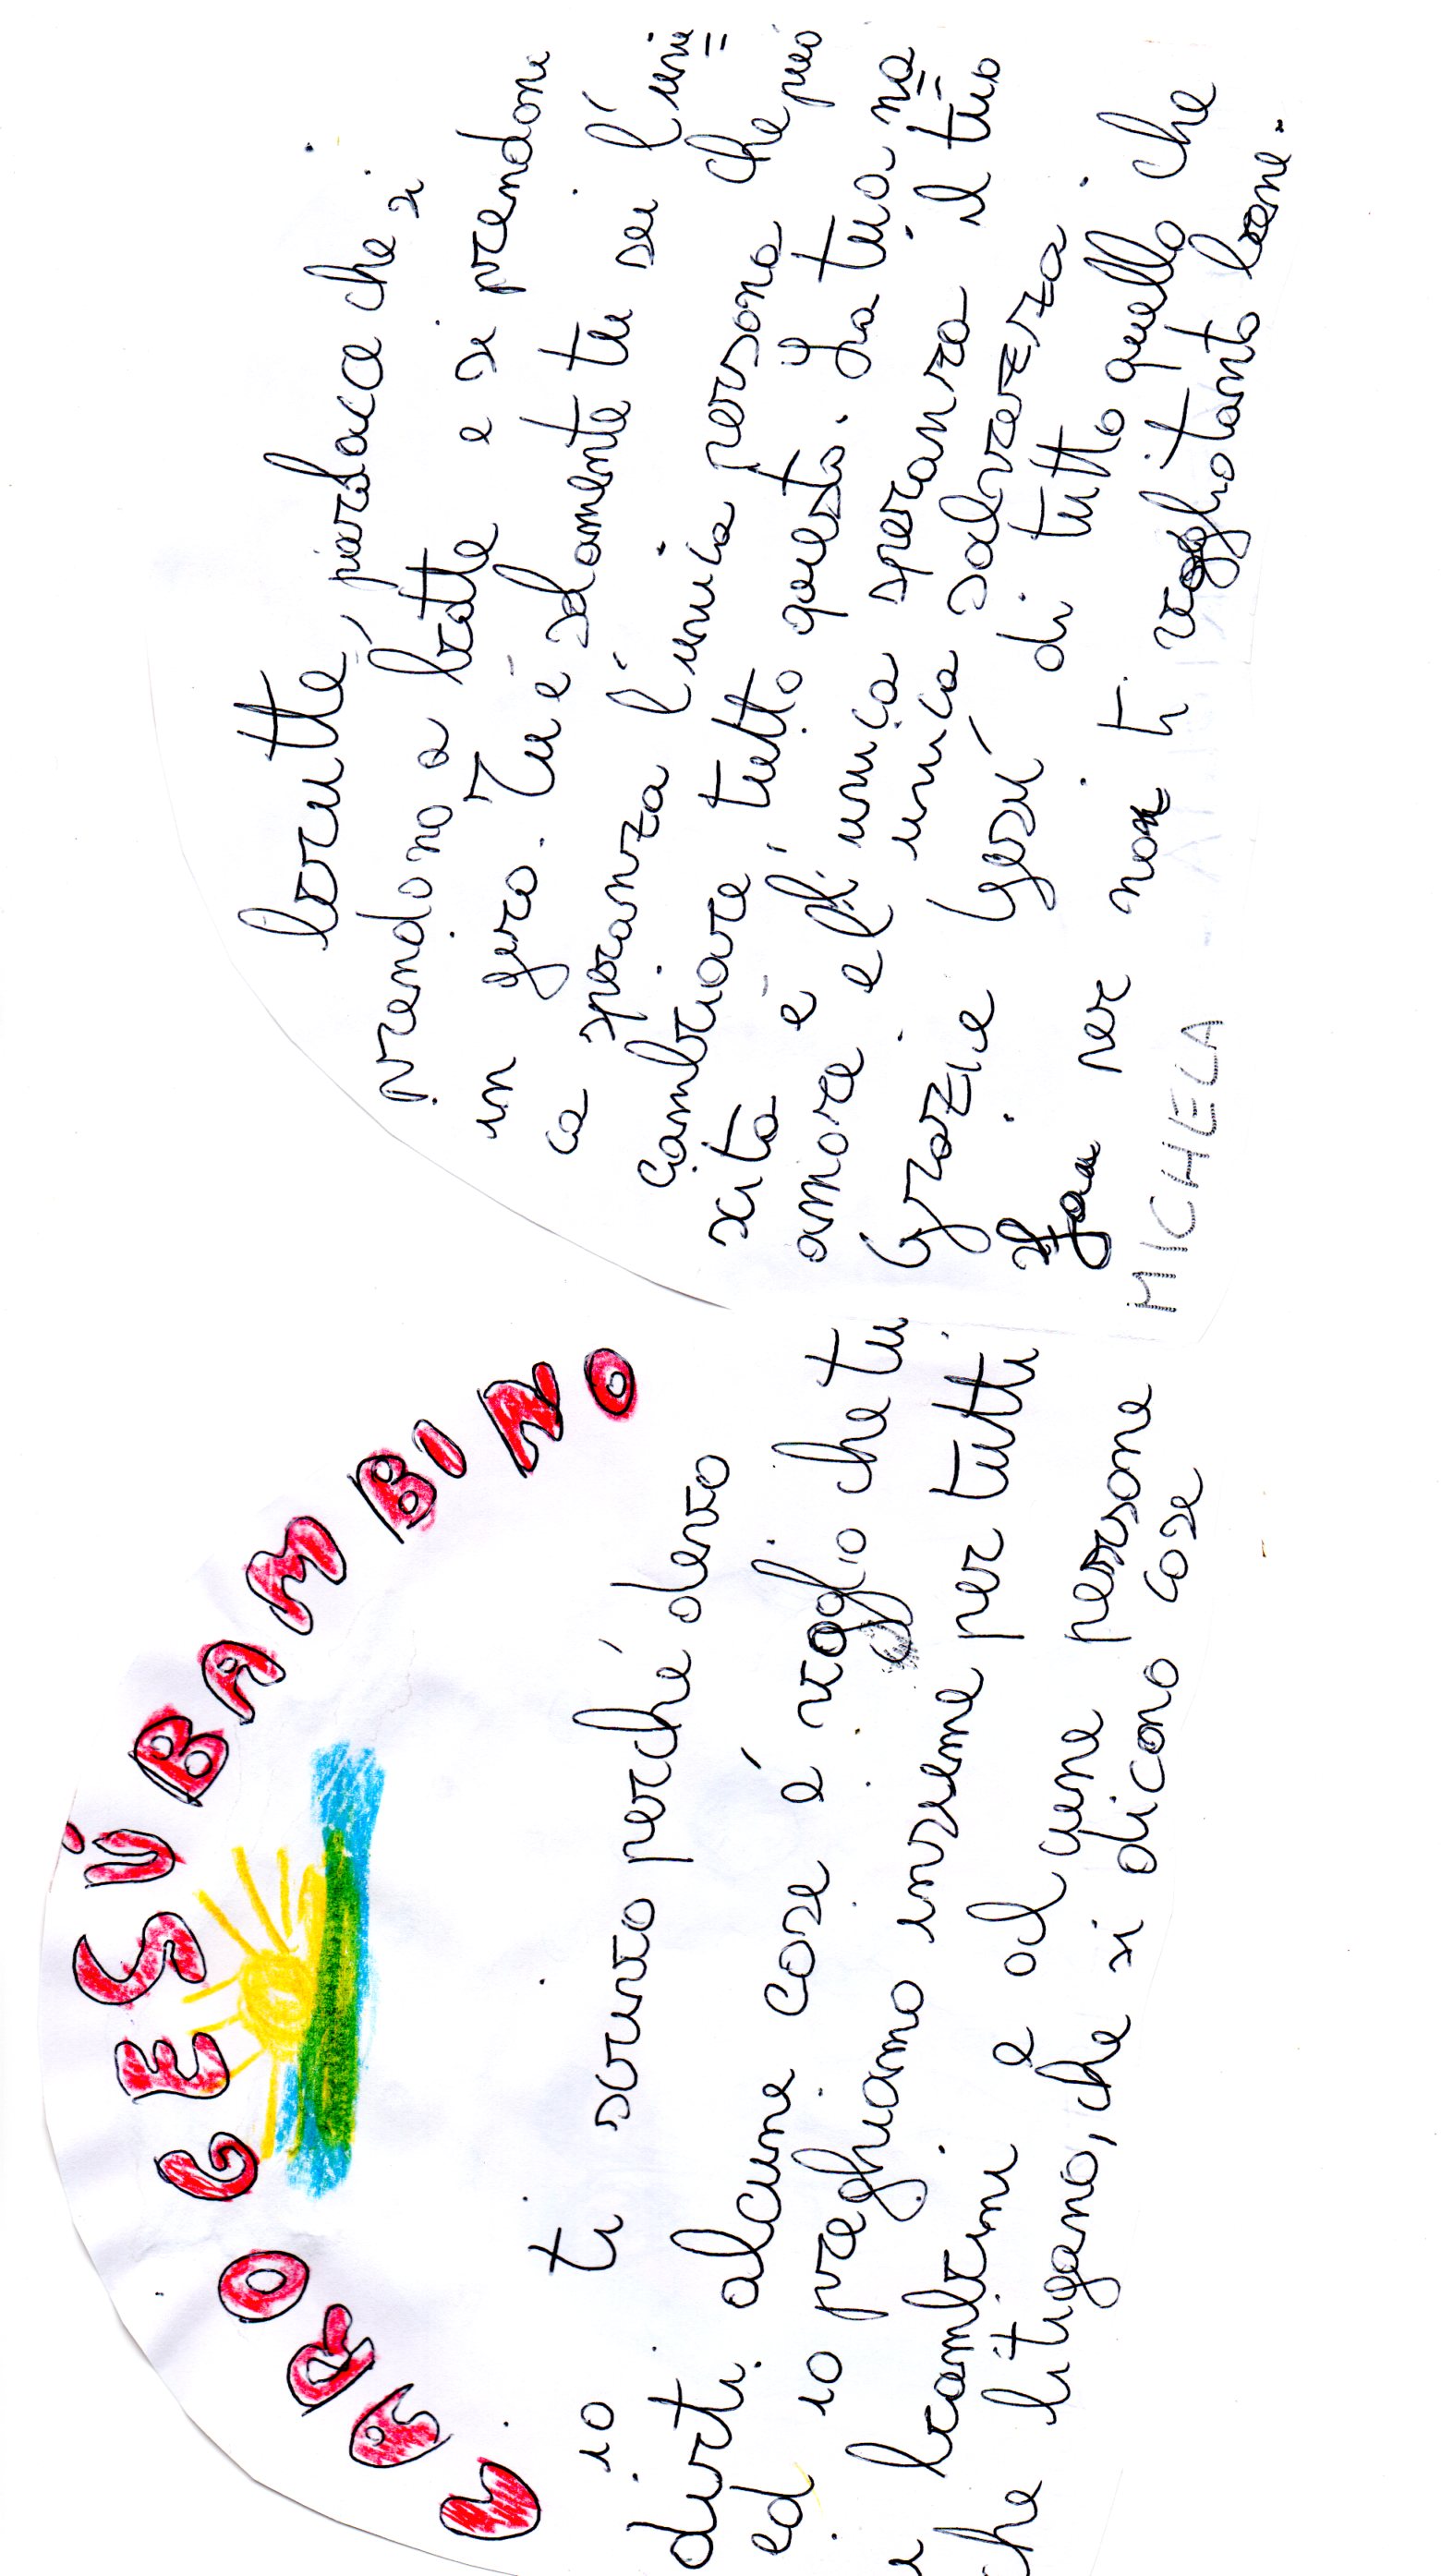 CARO GESÚ BAMBINO
io ti scrivo perché devo
dirti alcune cose é voglio che tu
ed io preghiamo insieme per tutti
i bambini e ad alcune persone
che litigano, che si dicono cose
brutte, parolacce che si
prendono a botte e si prendono
in giro. Tu e solamente tu sei l'uni=
ca speranza l'unica persona che può
cambiare tutto questo. La tua na=
scita é l'unica speranza il tuo
amore e l'unica salvezza.
Grazie Gesú di tutto quello che
fai per noi ti voglio tanto bene.
MICHELA